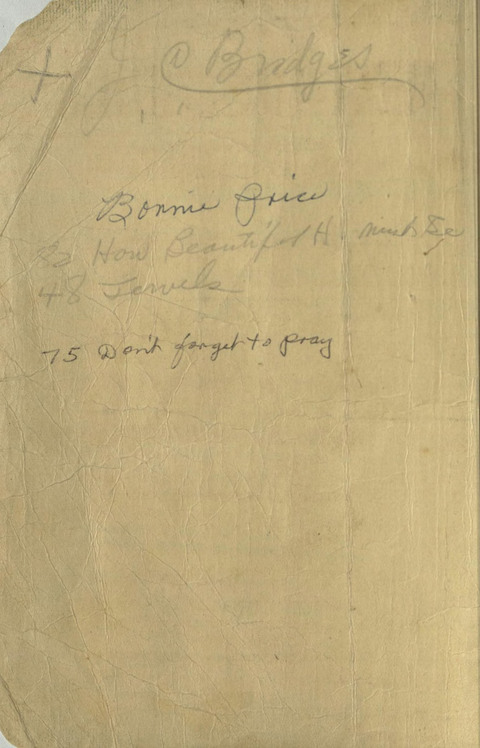 Bridges
Bonnie Price
82 How Beautiful H. must be
48 Jewels
75 Don't forget to pray